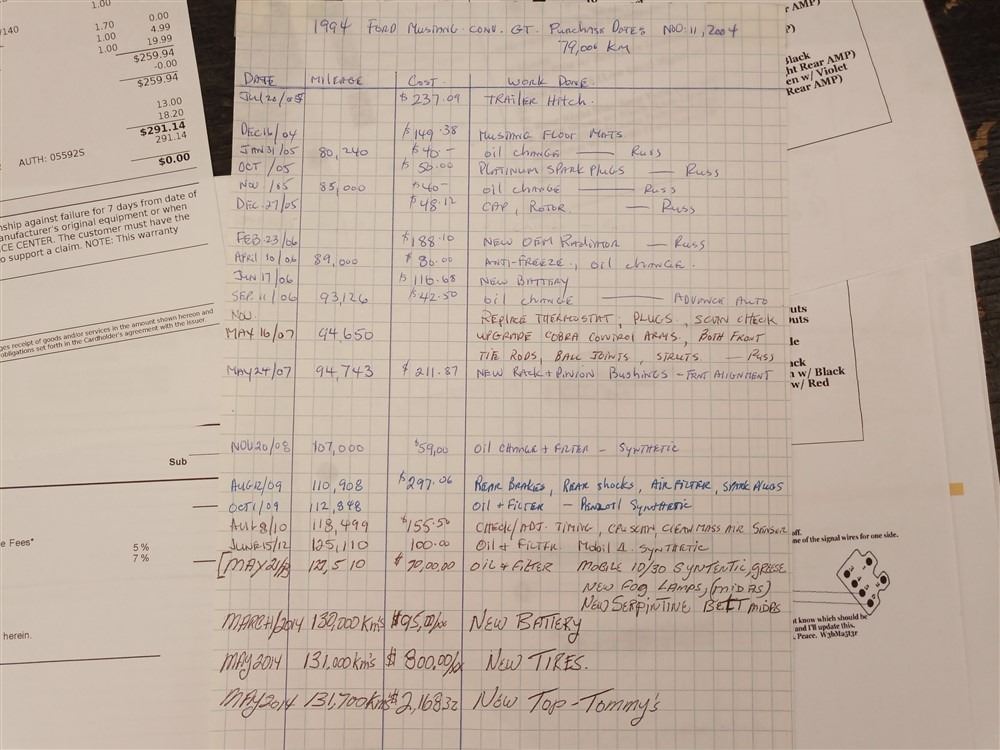 1994 FORD MUSTANG CONV. GT. PURCHASE DATES NOV. 11, 2004
79,006 KM
DATE MILEAGE COST. WORK DONE.
$ 237.09 TRAILER HITCH.
DEC 16/04 $ 149.38 MUSTANG FLOOR MATS
JAN 31/05 80,240 $ 40 - OIL CHANGE — RUSS
OCT /05 $ 50.00 PLATINUM SPARK PLUGS — RUSS
NOV /05 85,000 $ 40 - OIL CHANGE — RUSS
DEC. 27/05 $ 48.12 CAP, ROTOR — RUSS
FEB. 23/06 $ 188.10 NEW OEM RADIATOR — RUSS
APRIL 10/06 89,000 $ 80.00 ANTI-FREEZE, OIL CHANGE.
JUN 17/06 $ 116.68 NEW BATTERY
SEP. 11/06 93,126 $ 42.50 OIL CHANGE — ADVANCE AUTO
NOV. REPLACE THERMOSTAT, PLUGS, SCAN CHECK
MAY 16/07 94,650 UPGRADE COBRA CONTROL ARMS, BOTH FRONT
TIE RODS, BALL JOINTS, STRUTS. — RUSS
MAY 24/07 94,743 $ 211.87 NEW RACK + PINION BUSHINGS - FRNT ALIGNMENT
NOV 20/08 107,000 $59.00 OIL CHANGE + FILTER - SYNTHETIC
AUG 12/09 110,908 $297.06 REAR BRAKES, REAR SHOCKS, AIR FILTER, SPARK PLUGS
OCT 1/09 112,848 OIL + FILTER - PENZOIL SYNTHETIC
AUG 8/10 118,499 $155.50 CHECK/ADJ. TIMING, CLEAN MASS AIR SENSOR
JUNE 15/12 125,110 100.00 OIL + FILTER MOBIL 1 SYNTHETIC
[MAY 510 $ 70,00.00 OIL + FILTER MOBILE 10/30 SYNTENTIC, GREESE
NEW FOG LAMPS, (MIDAS)
NEW SERPINTINE BELT MIDAS
MARCH/2014 130,000 KM'S $195,00/00 NEW BATTERY
MAY 2014 131,000 KM'S $ 800,00/xx NEW TIRES.
MAY 2014 131,700 KM'S $2,168 32 NEW TOP - TOMMY'S
1.00
/140 1.70 0.00
1.00 4.99
1.00 19.99
$259.94
-0.00
$259.94
13.00
18.20
$291.14
291.14
AUTH: 05592S $0.00
nship against failure for 7 days from date of
anufacturer's original equipment or when
CE CENTER. The customer must have the
o support a claim. NOTE: This warranty
ges receipt of goods and/or services in the amount shown hereon and
obligations set forth in the Cardholder's agreement with the issuer.
Sub
e Fees*
5 %
7 %
herein.
r AMP)
Black)
ht Rear AMP)
en w/ Violet
Rear AMP)
uts
uts
le
ack
n w/ Black
w/ Red
off.
me of the signal wires for one side.
t know which should be
and I'll update this.
. Peace. W3bMa5t3r